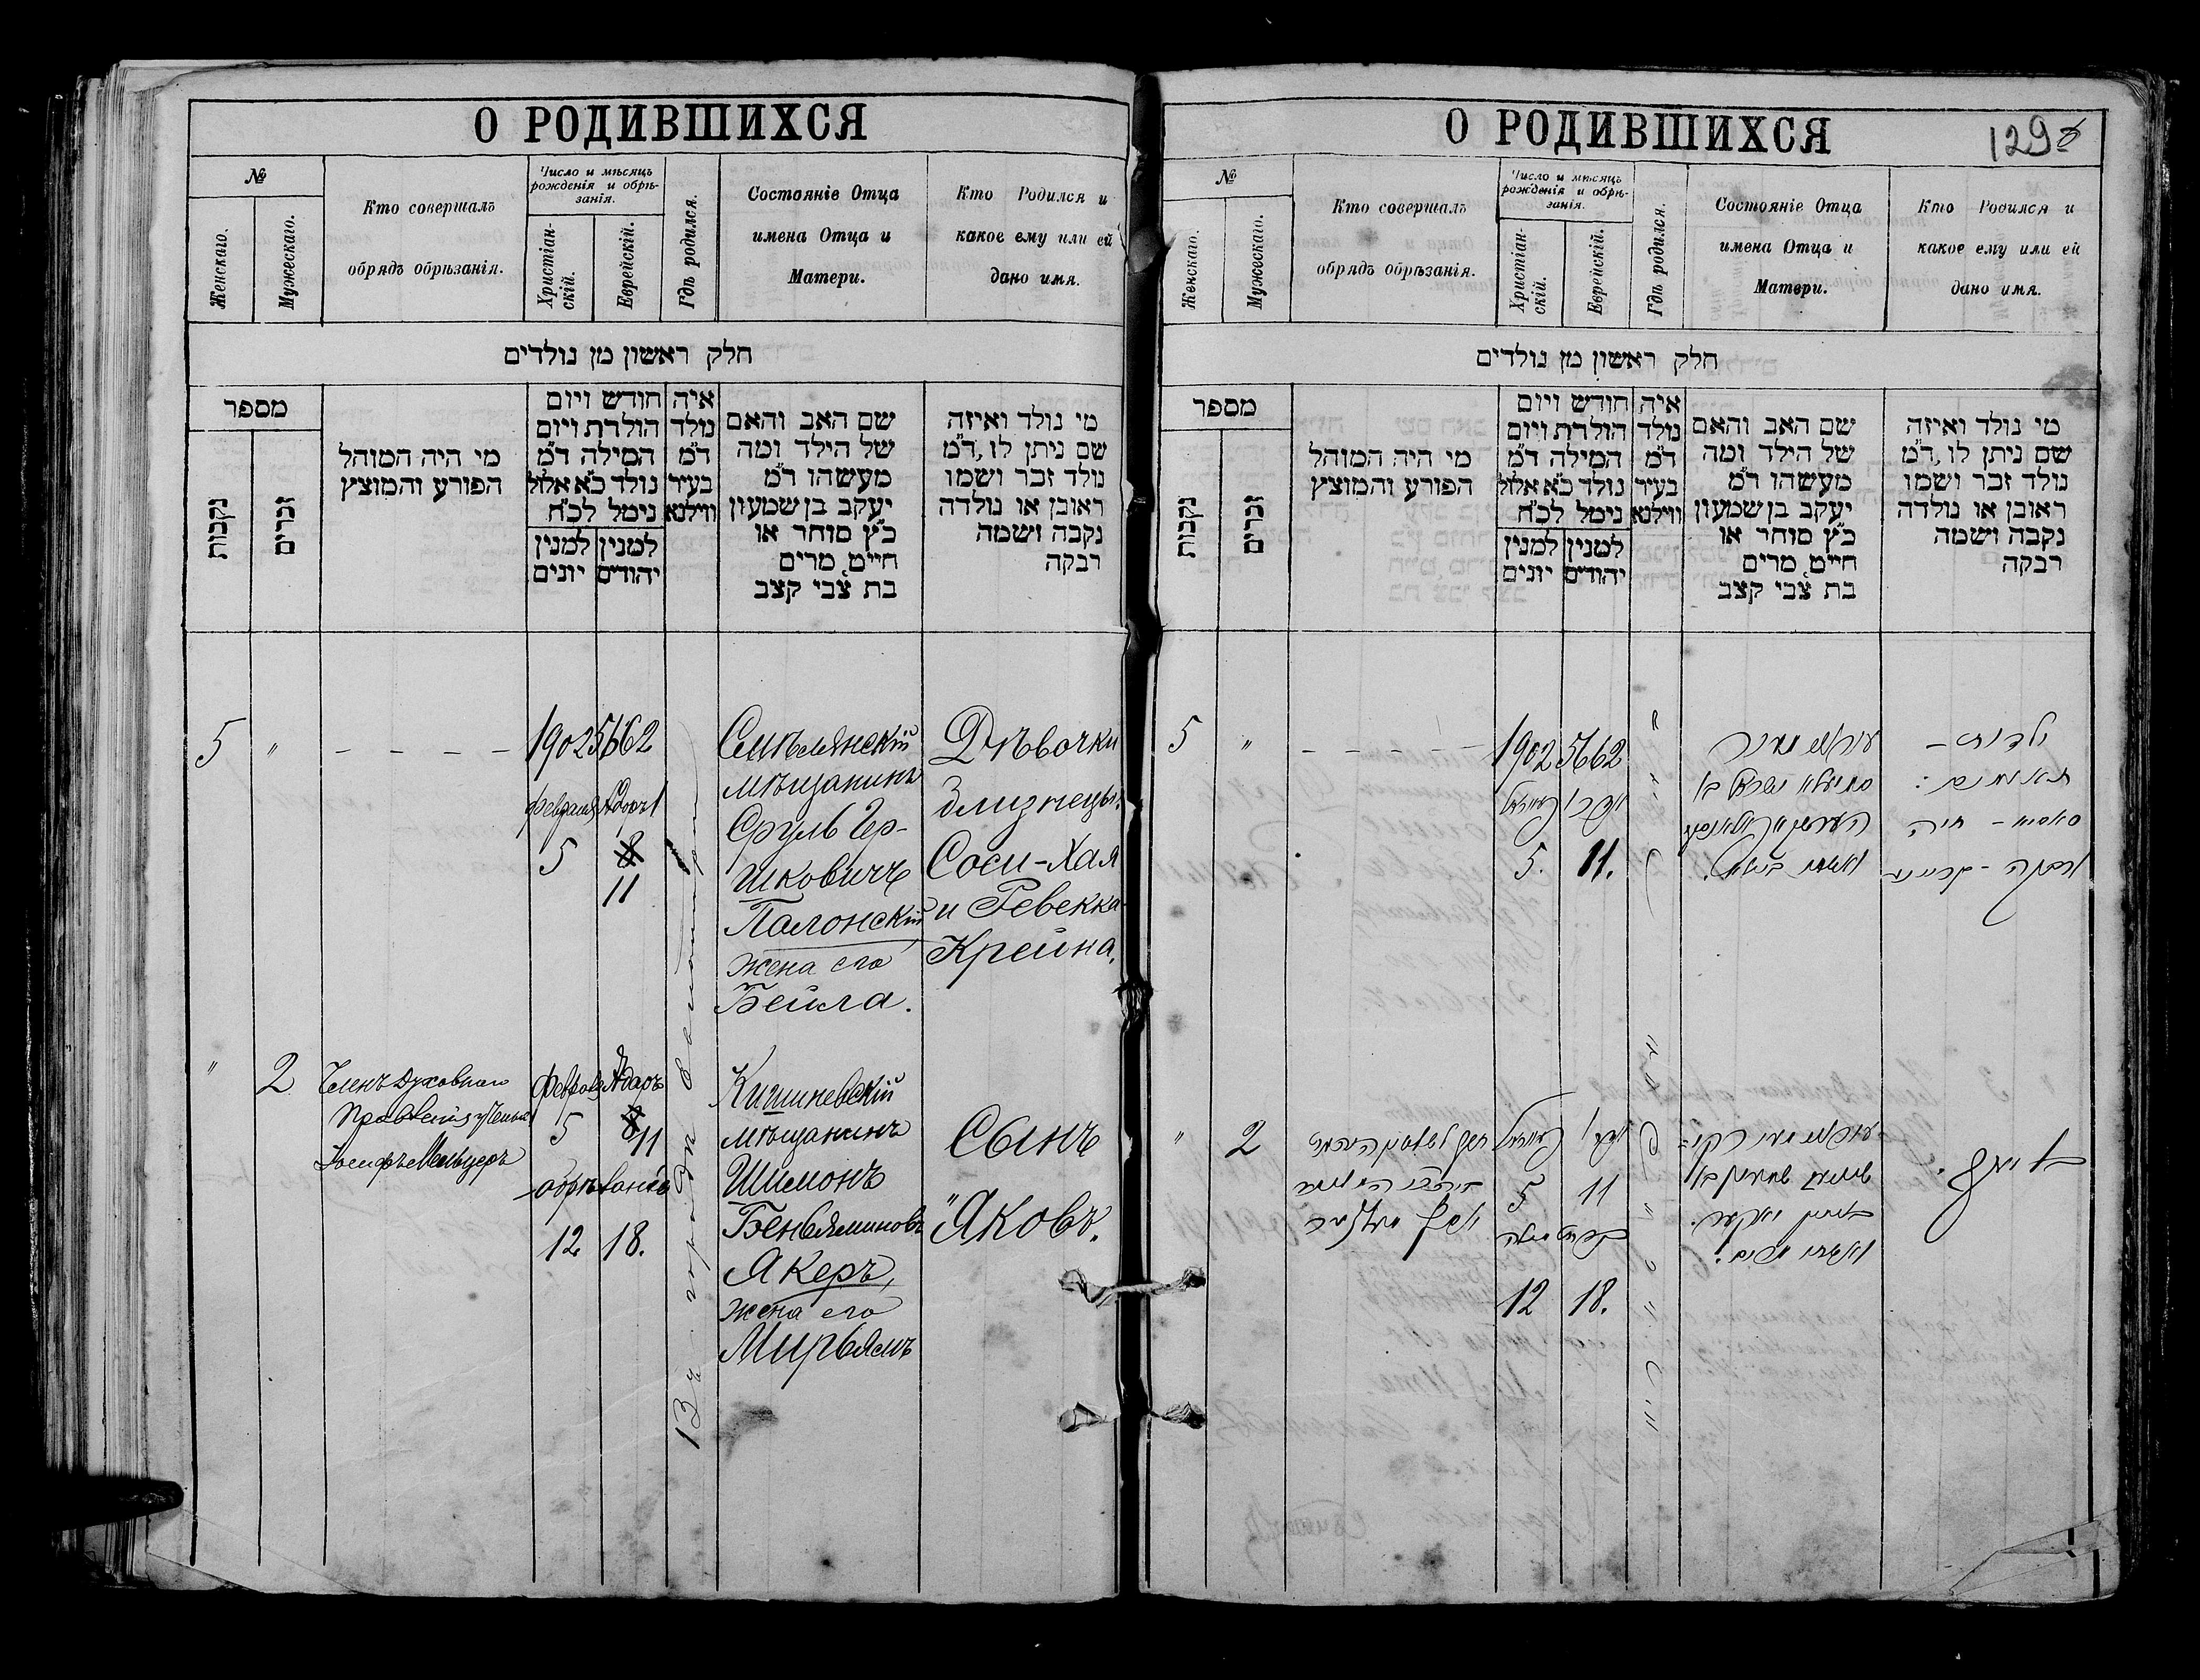 О РОДИВШИХСЯ
№
Женскаго.
Мужескаго.
Кто совершалъ
обрядъ обрѣзанія.
Число и мѣсяцъ
рожденія и обрѣ-
занія.
Христіан-
скій.
Еврейскій.
Гдѣ родился.
Состояніе Отца
имена Отца и
Матери.
Кто Родился и
какое ему или ей
дано имя.
חלק ראשון מן נולדים
מספר
נקבות
זכרים
מי היה המוהל
הפורע והמוצץ
חודש ויום
הולדת ויום
המילה ד״מ
נולד כ״א אלול
נימל לכ״ח
למנין
יונים
למנין
יהודים
איה
נולד
ד״מ
בעיר
ווילנא
שם האב והאם
של הילד ומה
מעשהו ד״מ
יעקב בן שמעון
כ״ץ סוחר או
חיי״ט, מרים
בת צבי קצב
מי נולד ואיזה
שם ניתן לו, ד״מ
נולד זכר ושמו
ראובן או נולדה
נקבה ושמה
רבקה
5
"
- - - -
1902
Февраля
5
5662
Адаръ 1
8
11
Въ городѣ
Смѣлянскій
мѣщанинъ
Сруль Гер-
шковичъ
Палонскій
жена его
Бейла.
Дѣвочки
близнецы:
Соси-Хая
и Ревекка
Крейна.
"
2
Членъ Духовнаго
Правленія ученый
Іосифъ Мельцеръ
Февраля
5
обрѣзаніе
12
Адаръ
8
11
18.
Кишиневскій
мѣщанинъ
Шимонъ
Беньяминовъ
Якеръ,
жена его
Мирьямъ
Сынъ
"Яковъ.
О РОДИВШИХСЯ
129
№
Женскаго.
Мужескаго.
Кто совершалъ
обрядъ обрѣзанія.
Число и мѣсяцъ
рожденія и обрѣ-
занія.
Христіан-
скій.
Еврейскій.
Гдѣ родился.
Состояніе Отца
имена Отца и
Матери.
Кто Родился и
какое ему или ей
дано имя.
חלק ראשון מן נולדים
מספר
נקבות
זכרים
מי היה המוהל
הפורע והמוצץ
חודש ויום
הולדת ויום
המילה ד״מ
נולד כ״א אלול
נימל לכ״ח
למנין
יונים
למנין
יהודים
איה
נולד
ד״מ
בעיר
ווילנא
שם האב והאם
של הילד ומה
מעשהו ד״מ
יעקב בן שמעון
כ״ץ סוחר או
חיי״ט, מרים
בת צבי קצב
מי נולד ואיזה
שם ניתן לו, ד״מ
נולד זכר ושמו
ראובן או נולדה
נקבה ושמה
רבקה
5
"
- - - - -
1902
5.
5662
אדר 1
11.
ואשתו ביילא.
ילדות –
תאומים :
סאסיא – חיה
ורבקה – קריינא
"
2
5
12
אדר 1
11
18.
ואשתו מרים.
יעקב.